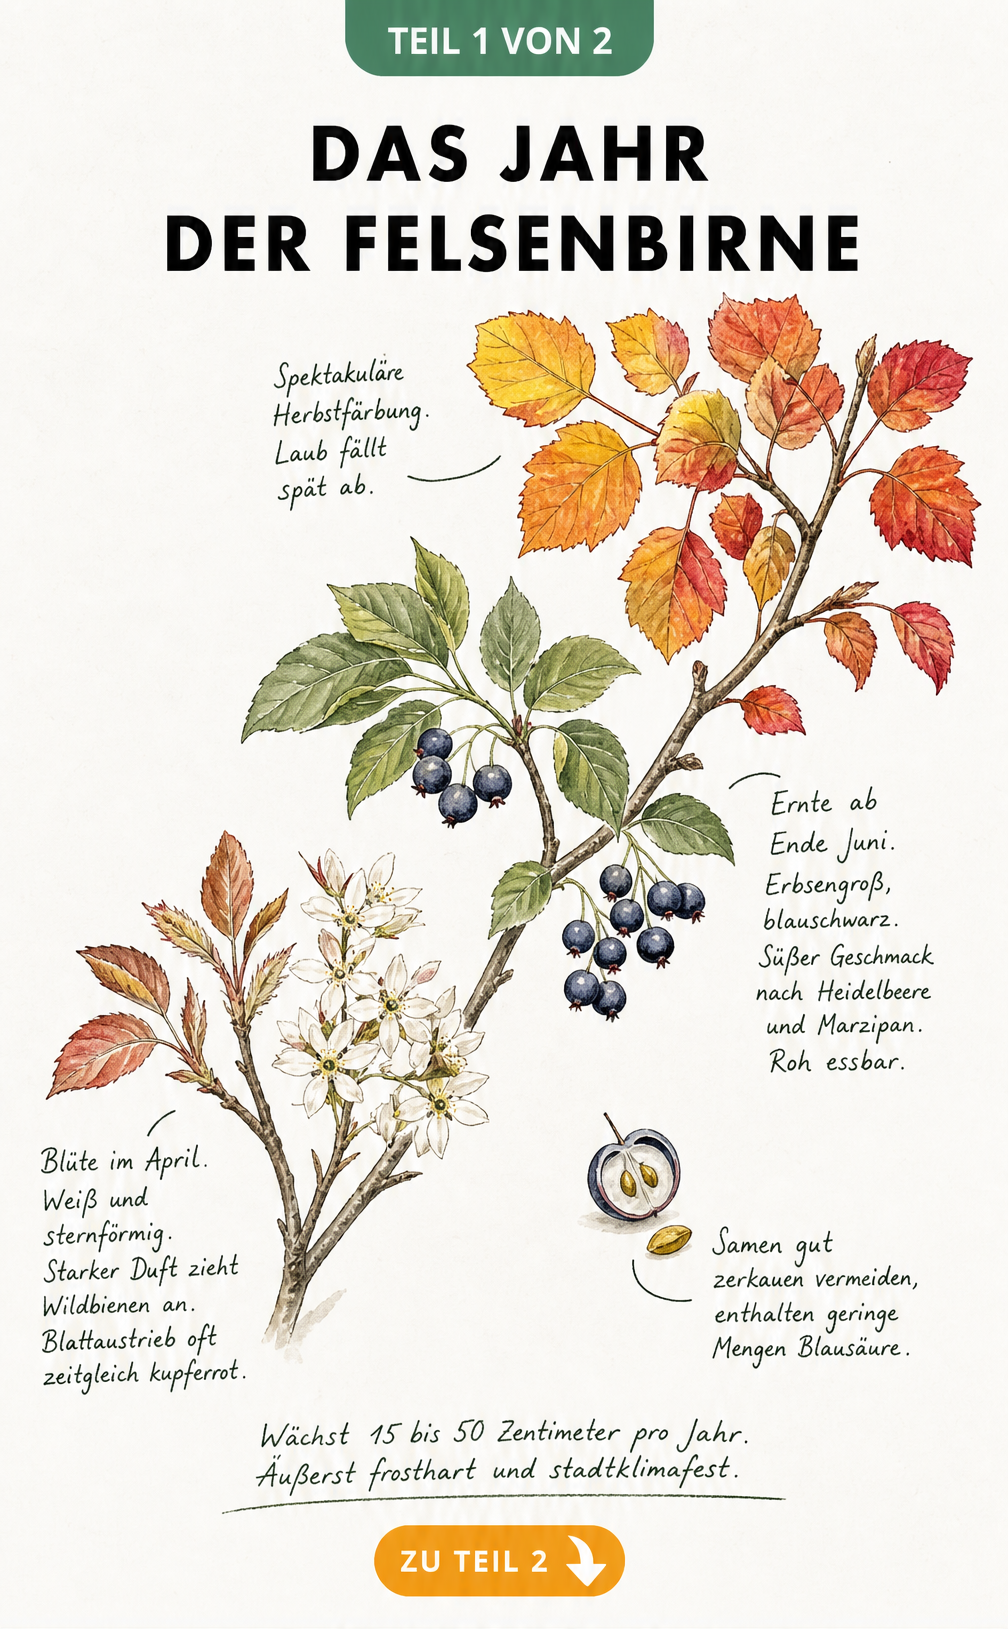 TEIL 1 VON 2
DAS JAHR
DER FELSENBIRNE
Spektakuläre
Herbstfärbung.
Laub fällt
spät ab.
Ernte ab
Ende Juni.
Erbsengroß,
blauschwarz.
Süßer Geschmack
nach Heidelbeere
und Marzipan.
Roh essbar.
Blüte im April.
Weiß und
sternförmig.
Starker Duft zieht
Wildbienen an.
Blattaustrieb oft
zeitgleich kupferrot.
Samen gut
zerkauen vermeiden,
enthalten geringe
Mengen Blausäure.
Wächst 15 bis 50 Zentimeter pro Jahr.
Äußerst frosthart und stadtklimafest.
ZU TEIL 2